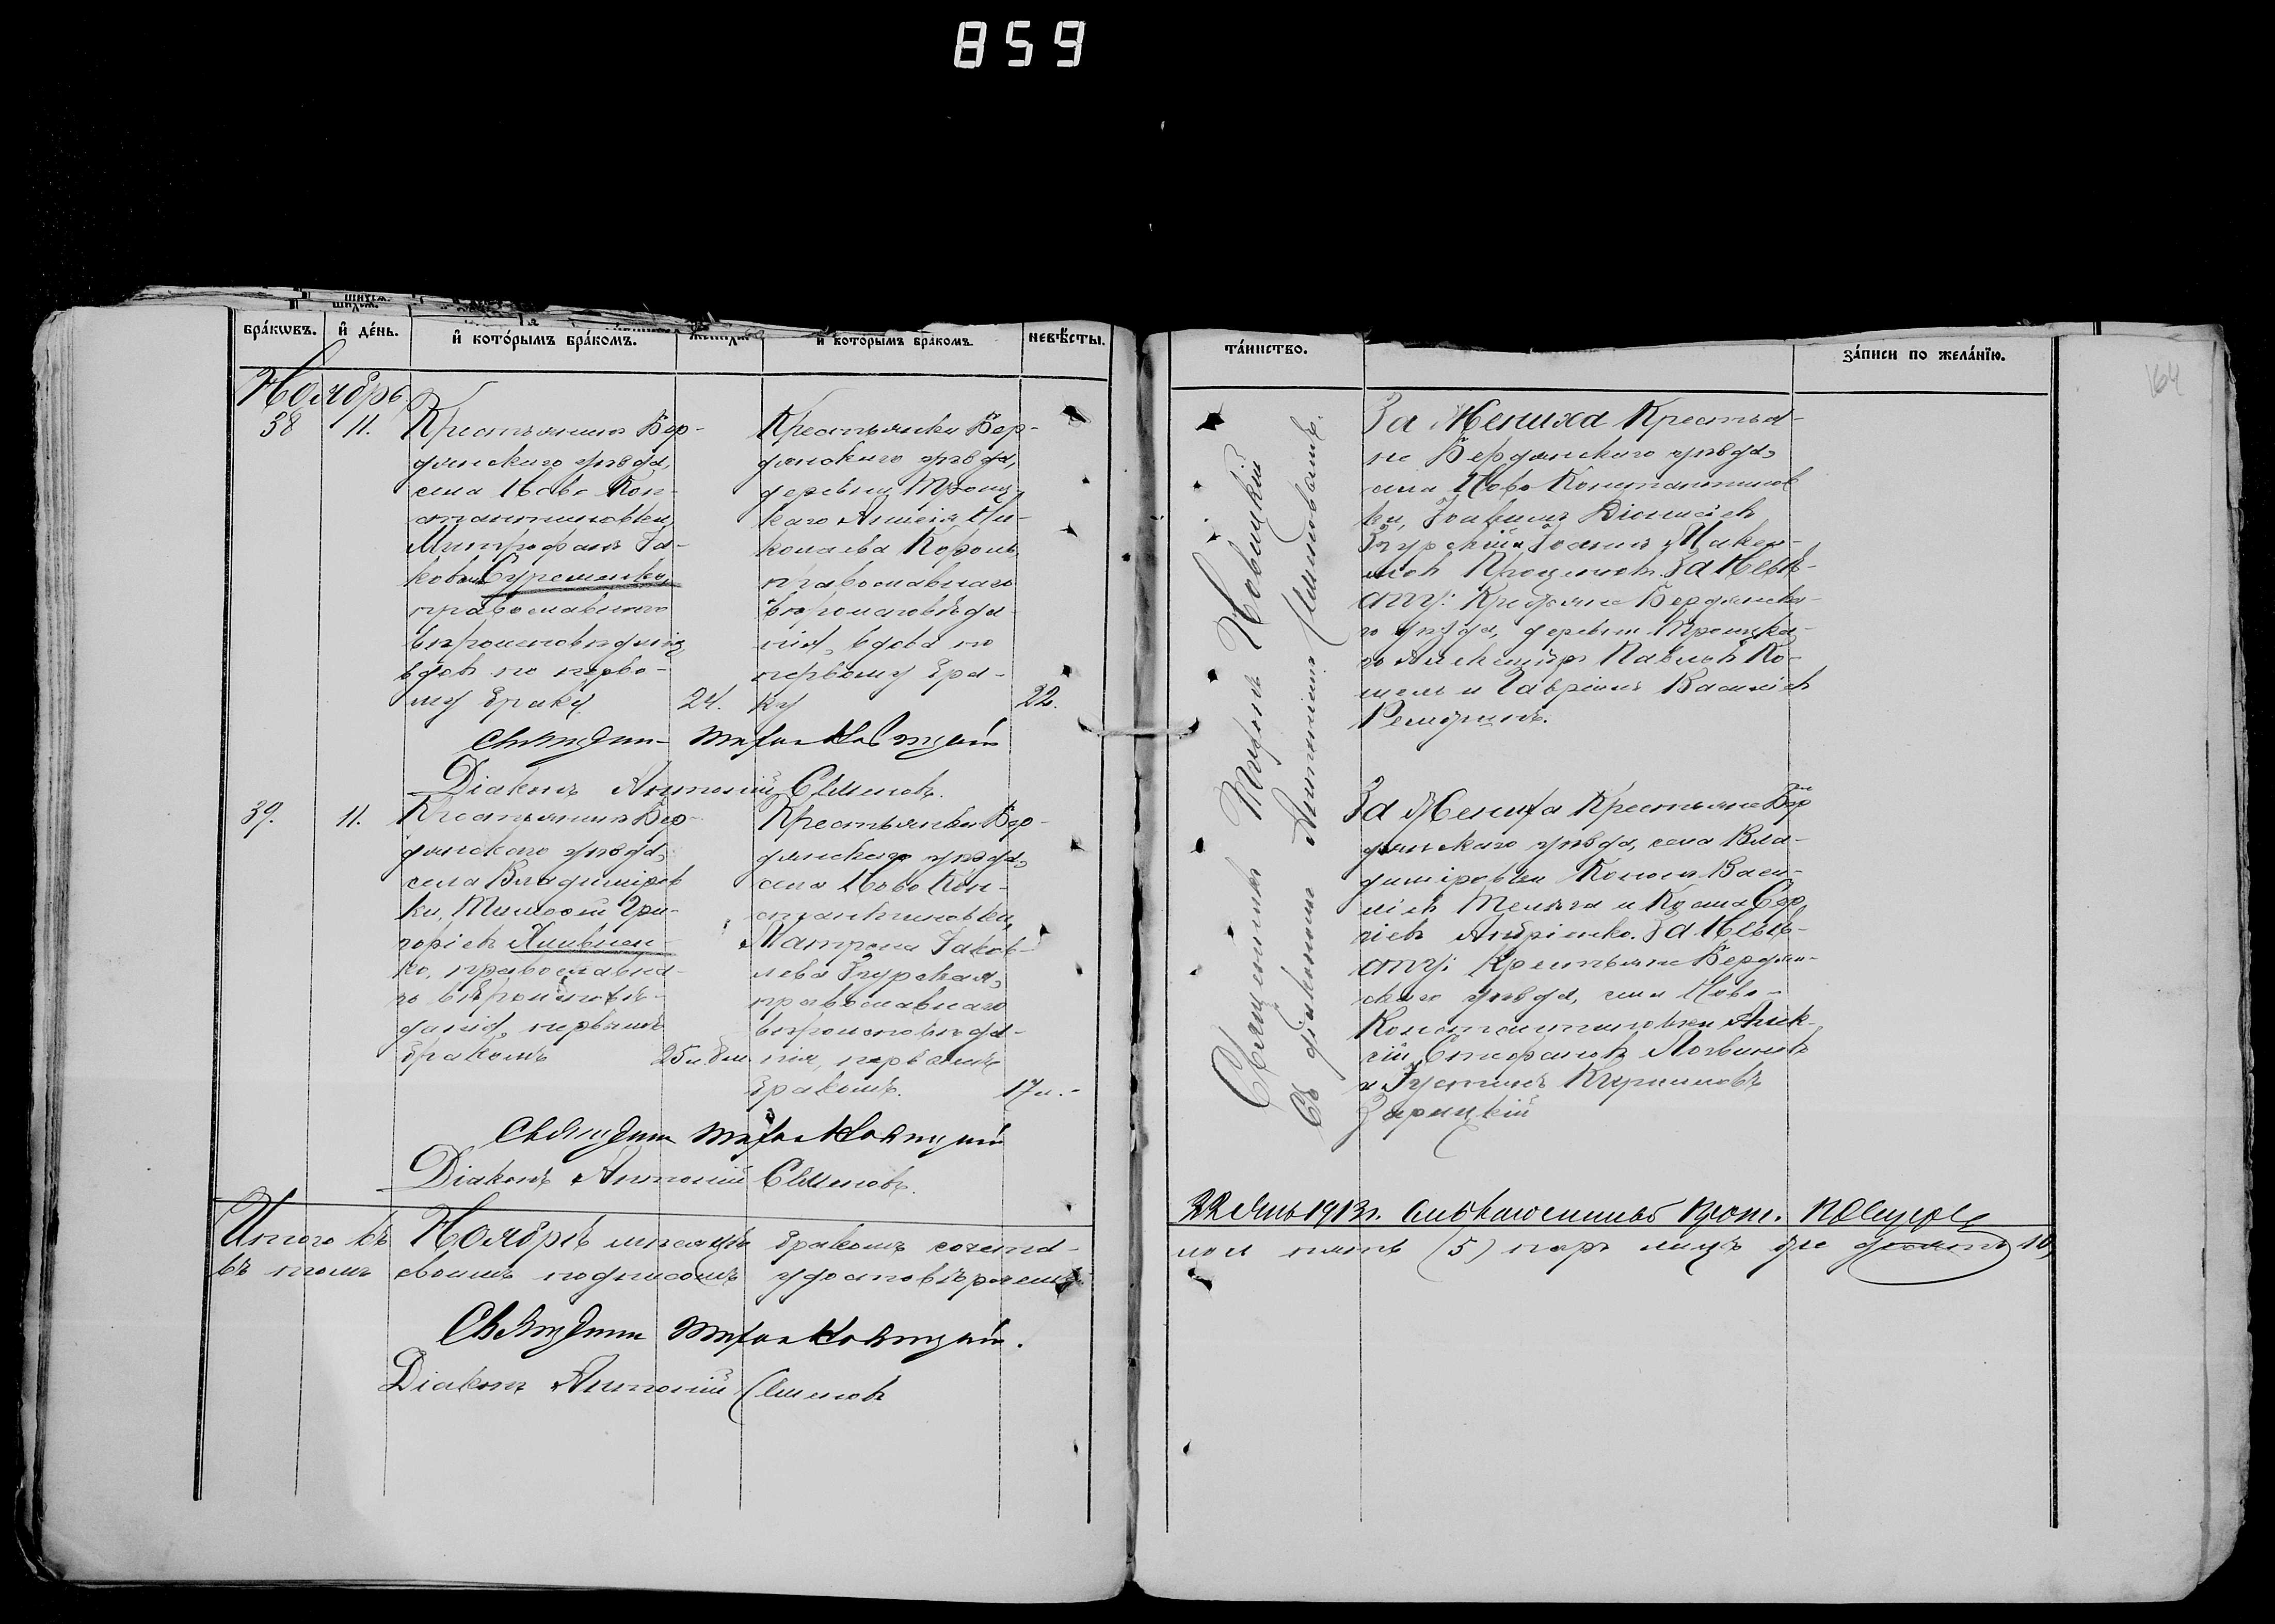 859
164
бра́кѡвъ.
и҆ де́нь.
и҆ кото́рымъ бра́комъ.
жениха̀
и҆ кото́рымъ бра́комъ.
невѣ́сты.
Ноябрь.
38
11.
Крестьянинъ Бер-
дянскаго уѣзда,
села Ново Кон-
стантиновки,
Митрофанъ Іа-
ковлевъ
православнаго
вѣроисповѣданія,
вдовъ по перво-
му браку
24.
Крестьянка Бер-
дянскаго уѣзда,
деревни Троиц-
каго Анисія Ни-
колаева Король,
православнаго
вѣроисповѣда-
нія, вдова по
первому бра-
ку
22.
Священникъ Трифонъ Новицкій
Діаконъ Антоній Семеновъ.
39.
11.
Крестьянинъ Бер-
дянскаго уѣзда,
села Владиміров-
ки, Тимофей Гри-
горіевъ
ко, православна-
го вѣроисповѣ-
данія, первымъ
бракомъ
25 л.
Крестьянка Бер-
дянскаго уѣзда,
села Ново Кон-
стантиновки,
Матрона Іаков-
лева Згурская,
православнаго
вѣроисповѣда-
нія, первымъ
бракомъ.
17 л.-
Священникъ Трифонъ Новицкій
Діаконъ Антоній Семеновъ.
Итого въ Ноябрѣ мѣсяцѣ бракомъ сочета-
въ томъ своимъ подписомъ удостовѣряемъ
Священникъ Трифонъ Новицкій.
Діаконъ Антоній Семеновъ
та́инство.
за́писи по жела́нїю.
Священникъ Трифонъ Новицкій
Съ діакономъ Антоніемъ Семеновымъ.
За Жениха Крестья-
не Бердянскаго уѣзда,
села Ново Константинов
ки, Іоакимъ Діонисіевъ
Згурскій и Іоаннъ
Проценковъ. За Невѣ-
сту: Крестьяне Бердянска-
го уѣзда, деревни Троицка-
го Александръ Павловъ Ко-
и Гавріилъ Василіевъ
За Жениха Крестьяне Бер
дянскаго уѣзда, села Вла-
диміровки Кононъ Васи-
ліевъ и Косма Сер-
гіевъ Андріенко. За Невѣ-
сту: Крестьяне Бердян-
скаго уѣзда, села Ново-
Константиновки Алек-
сій Стефановъ
и Іустинъ
Зарицкій
22 Янв 1913 г. Прот.
лось пять (5) паръ лицъ же десять 10)